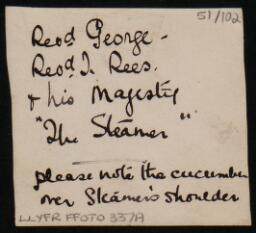 51/102
Revd George -
Revd J. Rees.
& his Majesty
"The Steamer"
please note the cucumber
over Steamer's shoulder
LLYFR FFOTO 337A